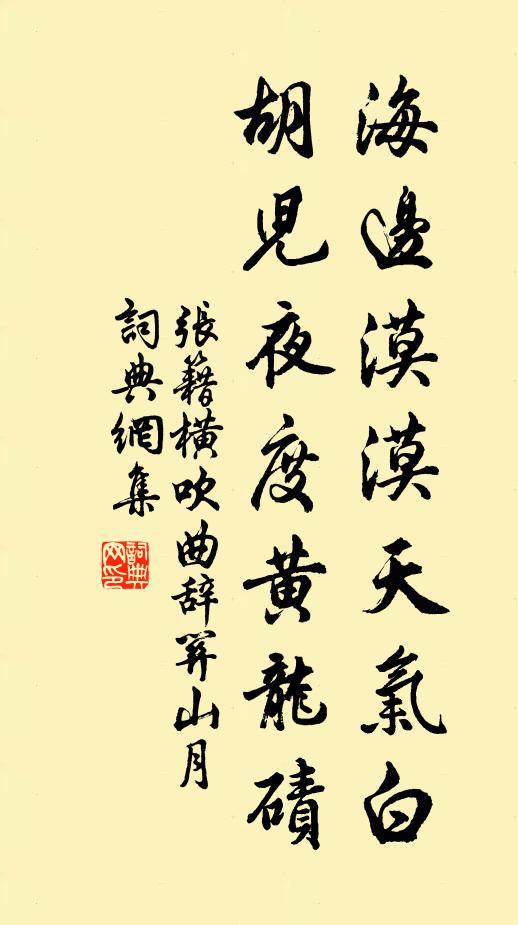 海邊漠漠天氣白
胡児夜度黄龍磧
張籍橫吹曲辞關山月
詞典網集
詞典网印